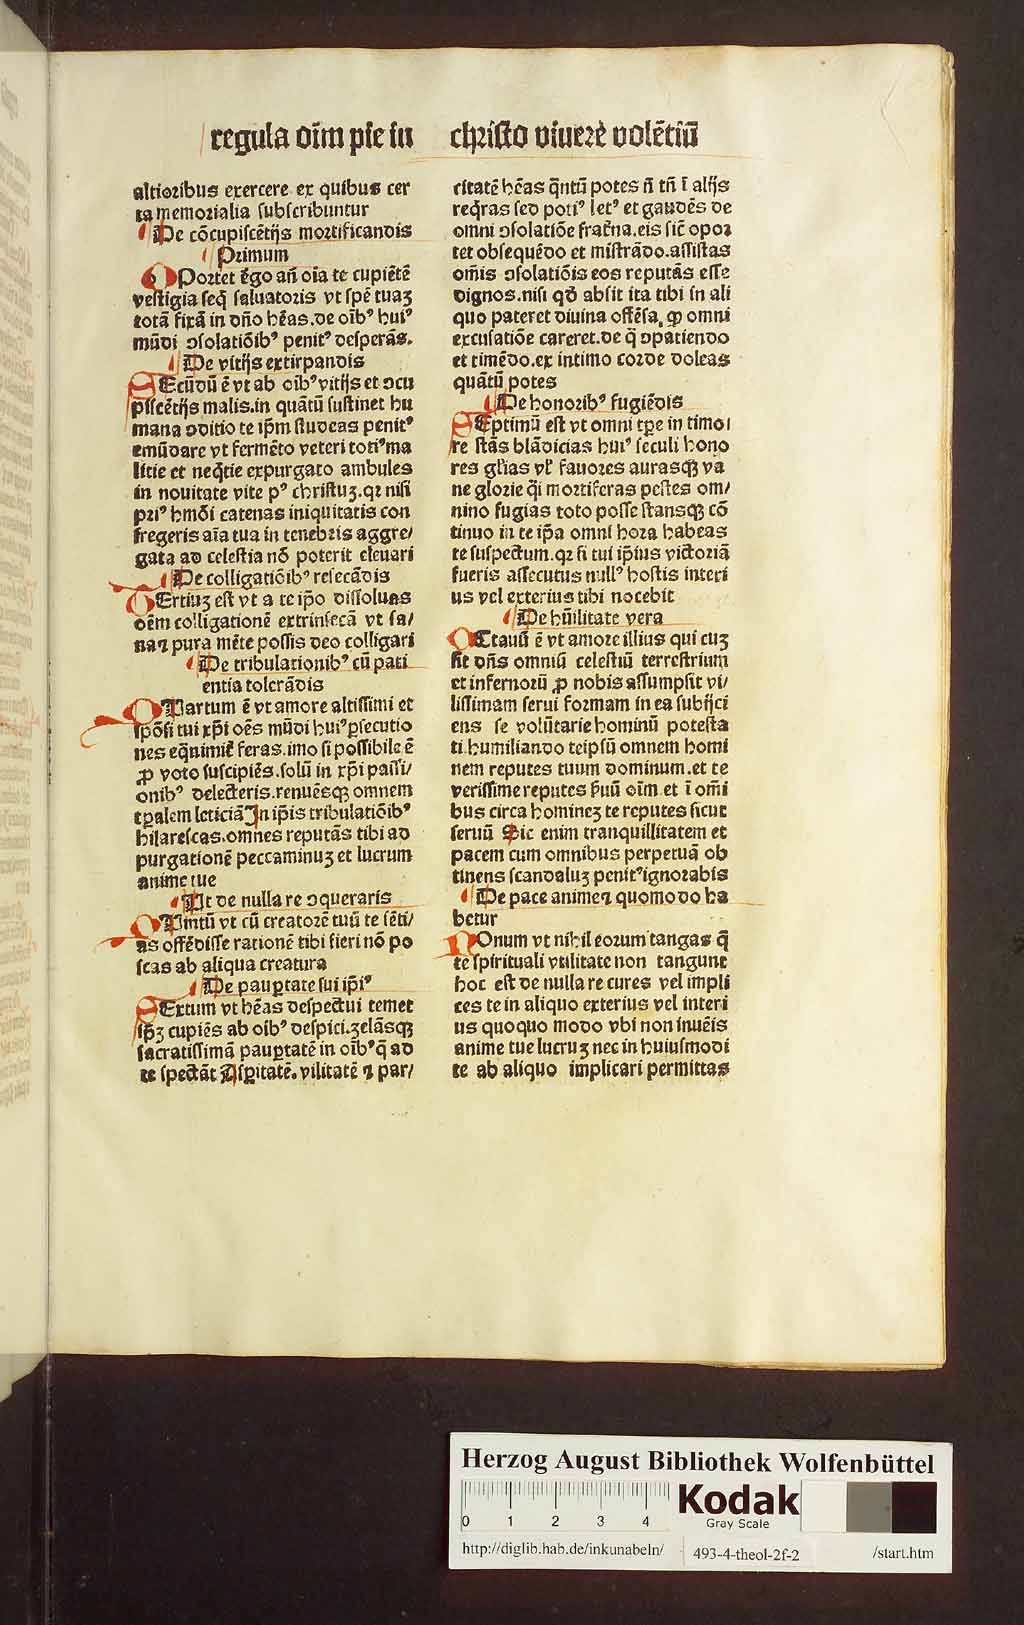 regula oīm pie in christo viuere volētiū
altioribus exercere ex quibus cer
ta memorialia subscribuntur
De cōcupiscētijs mortificandis
Primum
OPortet ḡgo añ oīa te cupiētē
vestigia seq̄ saluatoris vt spē tuaꝫ
totā fixā in dño hēas.de oībꝰ huiꝰ
mūdi ↄsolatiōibꝰ penitꝰ desperās.
De vitijs extirpandis
SEcūdū ē vt ab oībꝰ vitijs et ↄcu
piscētijs malis.in quātū sustinet hu
mana ↄditio te ip̄m studeas penitꝰ
emūdare vt fermēto veteri totiꝰ ma
litie et neq̄tie expurgato ambules
in nouitate vite pꝰ christuꝫ.qꝛ nisi
priꝰ hmōi catenas iniquitatis con
fregeris aīa tua in tenebris aggre/
gata ad celestia nō poterit eleuari
De colligatiōibꝰ resecādis
TErtiuꝫ est vt a te ip̄o dissoluas
oēm colligationē extrinsecā vt sa/
na ⁊ pura mēte possis deo colligari
De tribulationibꝰ cū pati
entia tolerādis
QUartum ē vt amore altissimi et
spōsi tui xp̄i oēs mūdi huiꝰ ꝑsecutio
nes eq̄nimit̄ feras.imo si possibile ē
ꝓ voto suscipiēs.solū in xp̄i passi/
onibꝰ delecteris.renuēsqꝫ omnem
tꝑalem leticiā In ip̄is tribulatiōibꝰ
hilarescas.omnes reputās tibi ad
purgationē peccaminuꝫ et lucrum
anime tue
Ut de nulla re ↄqueraris
QUintū vt cū creatorē tuū te sēti/
as offēdisse rationē tibi fieri nō po
scas ab aliqua creatura
De pauꝑtate sui ip̄iꝰ
SExtum vt hēas despectui temet
ip̄ꝫ cupiēs ab oībꝰ despici.zelāsqꝫ
sacratissimā pauꝑtatē in oībꝰ q̄ ad
te spectāt Asꝑitatē.vilitatē ⁊ par/
citatē hēas q̄ntū potes n̄ tn̄ ī alijs
req̄ras sed potiꝰ letꝰ et gaudēs de
omni ↄsolatiōe frat̄na.eis sic̄ opor
tet obsequēdo et mīstrādo.assistas
om̄is ↄsolatiōis eos reputās esse
dignos.nisi qđ absit ita tibi in ali
quo pateret diuina offēsa, ꝙ omni
excusatiōe careret.de q̄ ↄpatiendo
et timēdo.ex intimo corde doleas
quātū potes
De honoribꝰ fugiēdis
SEptimū est vt omni tꝑe in timo
re stās blādicias huiꝰ seculi hono
res gl̄ias vl̓ fauores aurasqꝫ va
ne glorie q̄i mortiferas pestes om/
nino fugias toto posse stansqꝫ cō
tinuo in te ip̄a omni hora habeas
te suspectum.qꝛ si tui ip̄ius victoriā
fueris assecutus nullꝰ hostis interi
us vel exterius tibi nocebit
De hūilitate vera
OCtauū ē vt amore illius qui cuꝫ
sit dn̄s omniū celestiū terrestrium
et infernorū ꝓ nobis assumpsit vi/
lissimam serui formam in ea subijci
ens se volūtarie hominū potesta
ti humiliando teipsū omnem homi
nem reputes tuum dominum.et te
verissime reputes ẜuū oīm.et ī om̄i
bus circa homineꝫ te reputes sicut
seruū Sic enim tranquillitatem et
pacem cum omnibus perpetuā ob
tinens scandaluꝫ penitꝰ ignorabis
De pace anime ⁊ quomodo ha
betur
NOnum vt nihil eorum tangas q̄
te spirituali vtilitate non tangunt
hoc est de nulla re cures vel impli
ces te in aliquo exterius vel interi
us quoquo modo vbi non inuēis
anime tue lucruꝫ nec in huiusmodi
te ab aliquo implicari permittas
Herzog August Bibliothek Wolfenbüttel
0 1 2 3 4
Kodak
Gray Scale
http://diglib.hab.de/inkunabeln/ 493-4-theol-2f-2 /start.htm